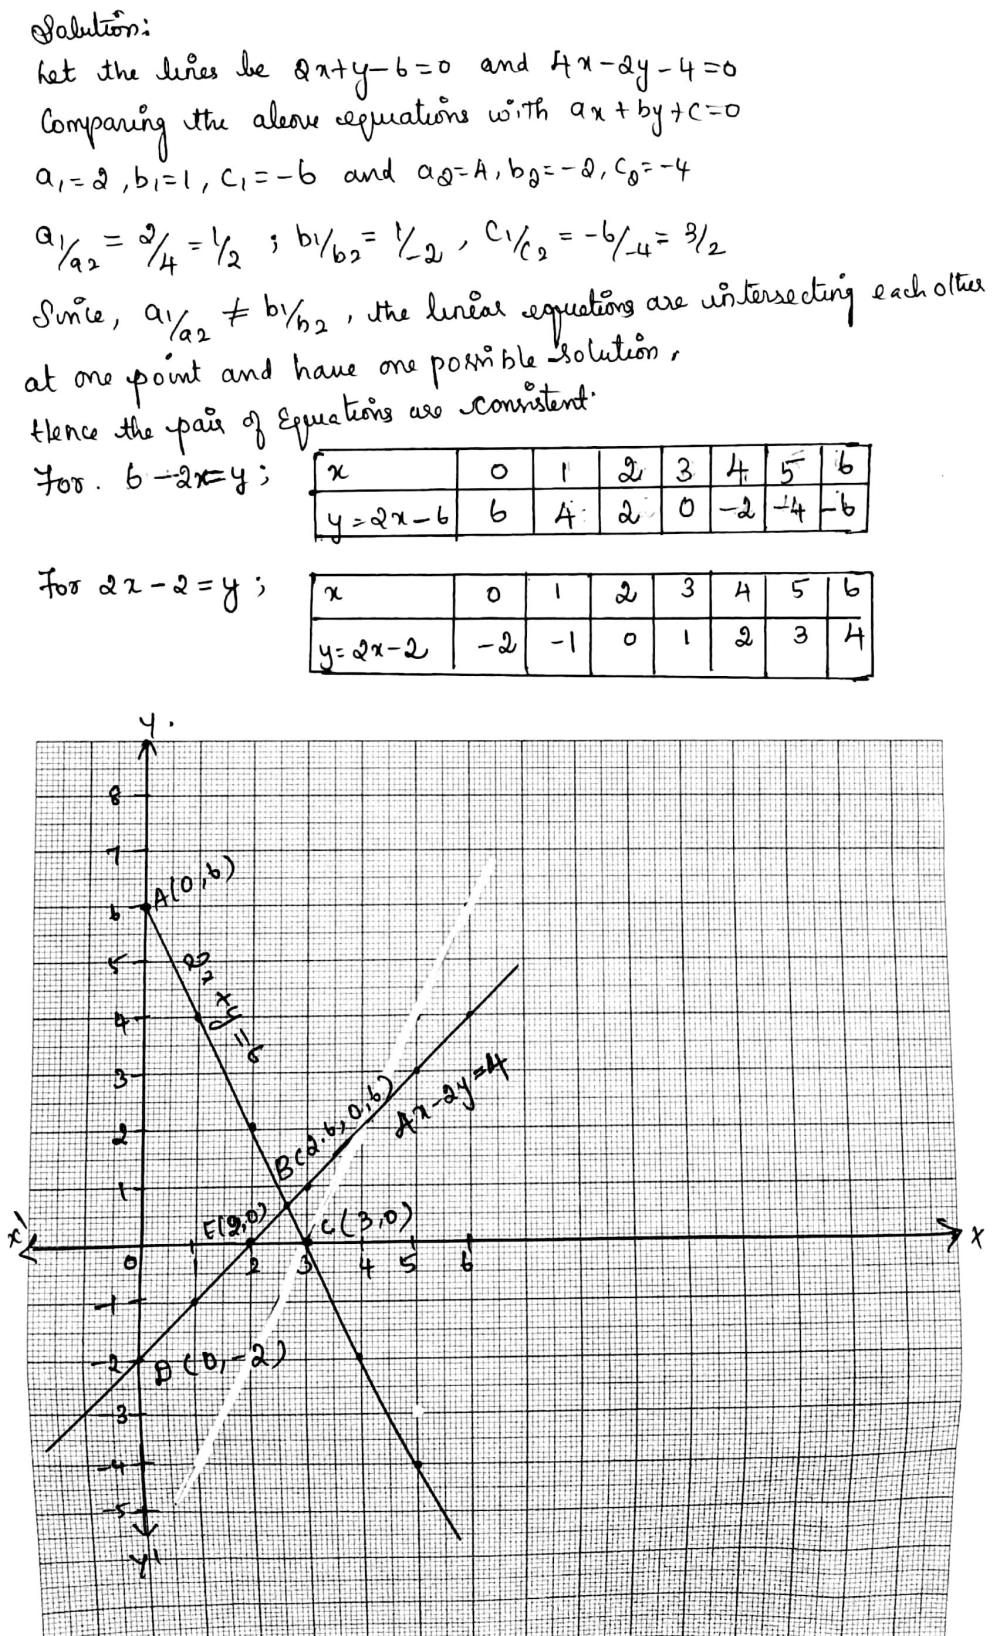 Solution:
Let the lines be 2x+y-6=0 and 4x-2y-4=0
Comparing the above equations with ax+by+c=0
a₁=2, b₁=1, c₁=-6 and a₂=4, b₂=-2, c₂=-4
a₁/a₂ = 2/4 = 1/2 ; b₁/b₂ = 1/-2 , c₁/c₂ = -6/-4 = 3/2
Since, a₁/a₂ ≠ b₁/b₂ , the linear equations are intersecting each other
at one point and have one possible solution.
Hence the pair of Equations are consistent.
For. 6-2x=y ;
x 0 1 2 3 4 5 6
y=2x-6 6 4 2 0 -2 -4 -6
For 2x-2=y ;
x 0 1 2 3 4 5 6
y=2x-2 -2 -1 0 1 2 3 4
y.
8
7
A(0,6)
6
5
2x+y=6
4
3
4x-2y=4
B(2.6,0,6)
2
1
E(2,0)
C(3,0)
x'
x
0 2 3 4 5 6
-1
-2
D(0,-2)
-3
-4
-5
y'